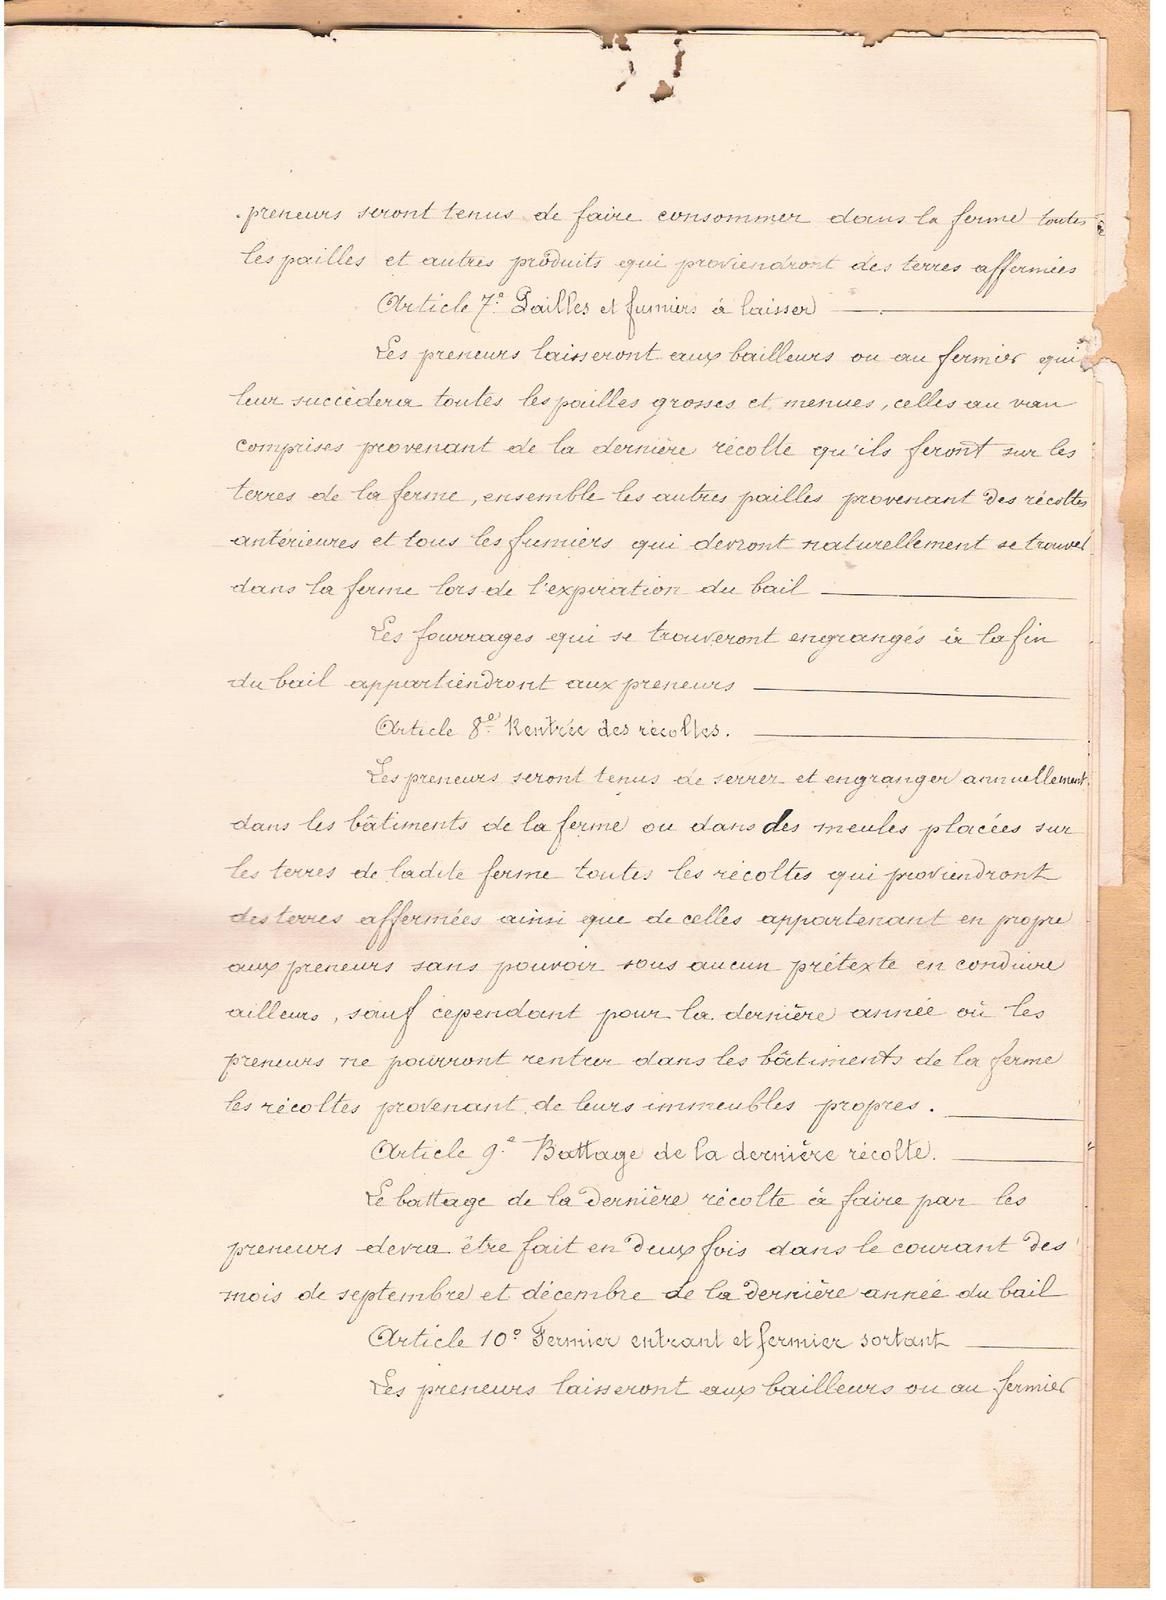 preneurs seront tenus de faire consommer dans la ferme toutes
les pailles et autres produits qui proviendront des terres affermées
Article 7.º Pailles et fumiers à laisser
Les preneurs laisseront aux bailleurs ou au fermier qui
leur succèdera toutes les pailles grosses et menues, celles au van
comprises provenant de la dernière récolte qu'ils feront sur les
terres de la ferme, ensemble les autres pailles provenant des récoltes
antérieures et tous les fumiers qui devront naturellement se trouver
dans la ferme lors de l'expiration du bail
Les fourrages qui se trouveront engrangés à la fin
du bail appartiendront aux preneurs
Article 8.º Rentrée des récoltes.
Les preneurs seront tenus de serrer et engranger annuellement
dans les bâtiments de la ferme ou dans des meules placées sur
les terres de ladite ferme toutes les récoltes qui proviendront
des terres affermées ainsi que de celles appartenant en propre
aux preneurs sans pouvoir sous aucun prétexte en conduire
ailleurs, sauf cependant pour la dernière année où les
preneurs ne pourront rentrer dans les bâtiments de la ferme
les récoltes provenant de leurs immeubles propres.
Article 9.º Battage de la dernière récolte.
Le battage de la dernière récolte à faire par les
preneurs devra être fait en deux fois dans le courant des
mois de septembre et décembre de la dernière année du bail
Article 10º Fermier entrant et fermier sortant
Les preneurs laisseront aux bailleurs ou au fermier